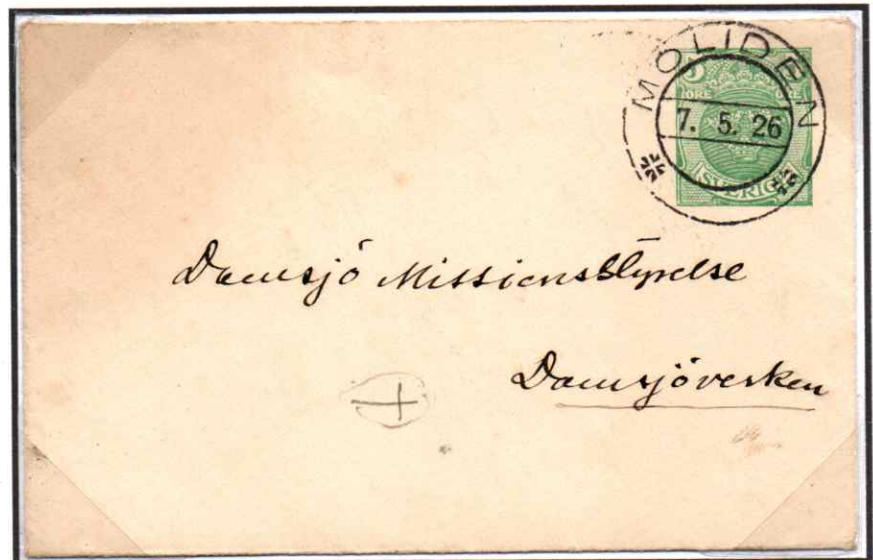 MOLIDEN
5 ÖRE ÖRE
7. 5. 26
SVERIGE
Domsjö Missionsstyrelse
Domsjöverken